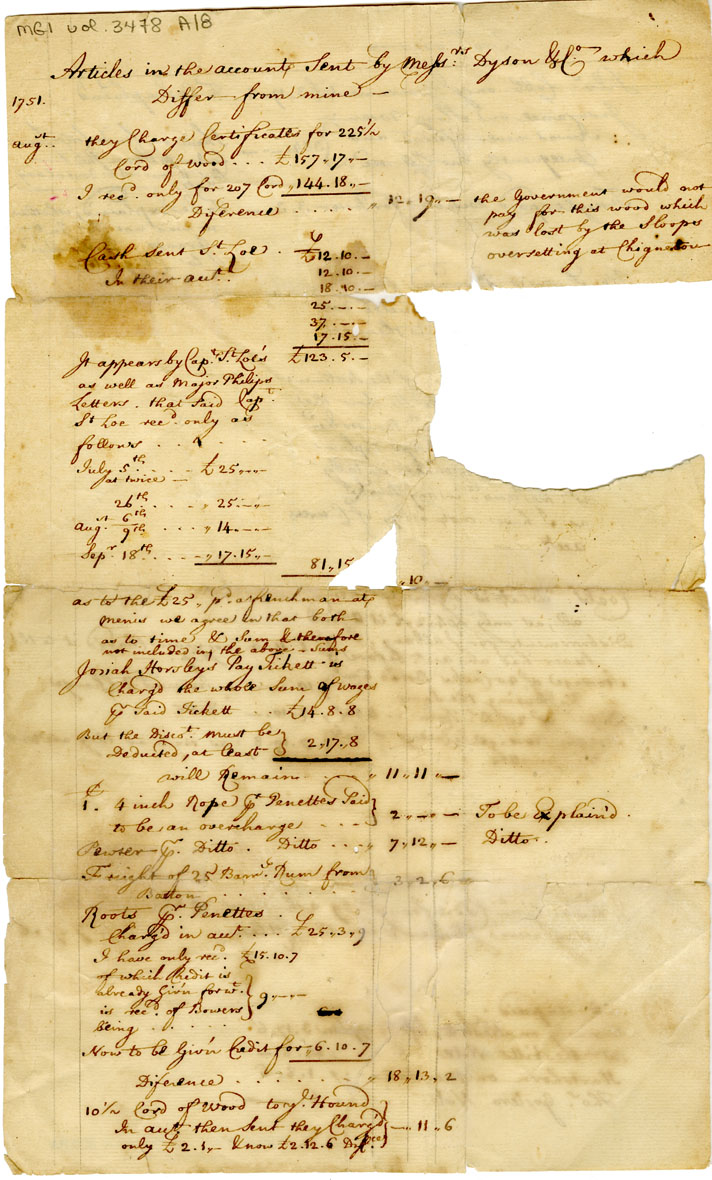 MG1 vol. 3478 A/8
Articles in the account Sent by Messrs. Dyson & Co. which
1751. Differ from mine —
Augt. they Charge Certificates for 225 1/2
Cord of Wood . . . £157 „ 17 „ —
I recd. only for 207 Cord „ 144 . 18 „ —
Diference . . . . . „ 12 „ 19 „ — the Government would not
pay for this wood which
was lost by the Sloops
oversetting at Chignecto
Cash Sent St. Loe . £12 . 10 . —
In their acct. 12 . 10 . —
18 . 10 . —
25 . — . —
37 . — . —
17 . 15 . —
It appears by Capt. St. Loe's £123 . 5 . —
as well as Major Philips
Letters . that Said Capt.
St Loe recd. only as
follows . . . . . .
July 5th . . . . £25 „ — „ —
at twice —
26th . . . . „ 25 — „ —
Augt. 6th
9th . . . „ 14 . — . —
Sepr. 18th . . . . „ 17 . 15 „ — 81 „ 15
„ 10 . —
as to the £25 „ pd. a frenchman at
Menis we agree in that both
as to time & Sum & therefore
not included in the above Sums
Josiah Horsley's Pay Tickett is
Charg'd the whole Sum of wages
pr. Said Tickett . . £14 . 8 . 8
But the Discot. must be
Deducted, at least } 2 „ 17 „ 8
will Remain . . . „ 11 „ 11 „ —
1. 4 inch Rope pr. Penettes Said
to be an overcharge . . . } 2 „ — „ — To be Explain'd .
Pewter pr. Ditto . Ditto . . „ 7 „ 12 „ — Ditto .
Freight of 25 Barrs. Rum from
3 „ 2 „ 6
Roots pr. Penettes .
Charg'd in acct. . . . £25 „ 3 „ 9
I have only recd. £15 . 10 . 7
of which Credit is
already Giv'n for wt.
is recd. of Bowers } 9 „ — „ —
being . . . . .
Now to be Giv'n Credit for „ 6 . 10 . 7
Diference . . . . . . „ 18 „ 13 „ 2
10 1/2 Cord of Wood to ye. Hound
In acct. then Sent they Charg'd } — „ 11 „ 6
only £2 . 1 „ — & now £2 . 12 . 6 Difce.